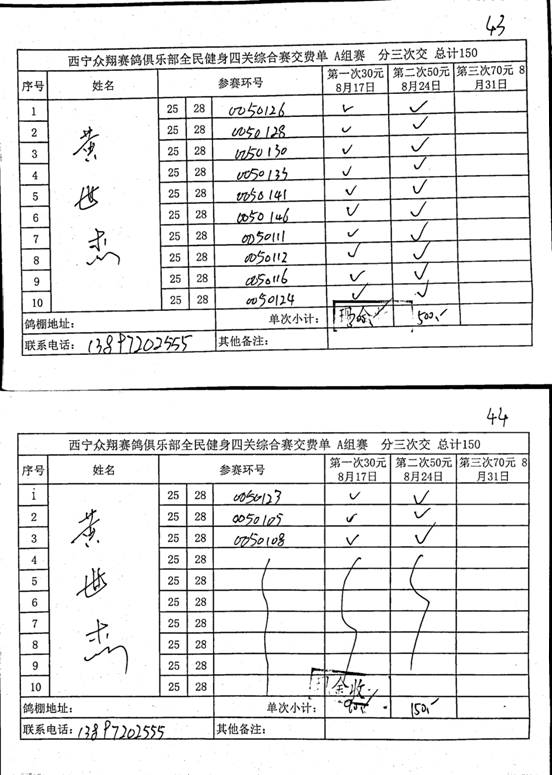 43
西宁众翔赛鸽俱乐部全民健身四关综合赛交费单 A组赛 分三次交 总计150
序号 姓名 参赛环号 第一次30元 8月17日 第二次50元 8月24日 第三次70元 8月31日
1 25 28 0050126 ✓ ✓
2 25 28 0050128 ✓ ✓
3 25 28 0050130 ✓ ✓
4 25 28 0050135 ✓ ✓
5 25 28 0050141 ✓ ✓
6 25 28 0050146 ✓ ✓
7 25 28 0050111 ✓ ✓
8 25 28 0050112 ✓ ✓
9 25 28 0050116 ✓ ✓
10 25 28 0050124 ✓ ✓
黄世杰
鸽棚地址: 单次小计: 500
联系电话: 13897202555 其他备注:
44
西宁众翔赛鸽俱乐部全民健身四关综合赛交费单 A组赛 分三次交 总计150
序号 姓名 参赛环号 第一次30元 8月17日 第二次50元 8月24日 第三次70元 8月31日
1 25 28 0050123 ✓ ✓
2 25 28 0050105 ✓ ✓
3 25 28 0050108 ✓ ✓
4 25 28
5 25 28
6 25 28
7 25 28
8 25 28
9 25 28
10 25 28
黄世杰
金收
鸽棚地址: 单次小计: 90 150
联系电话: 13897202555 其他备注: